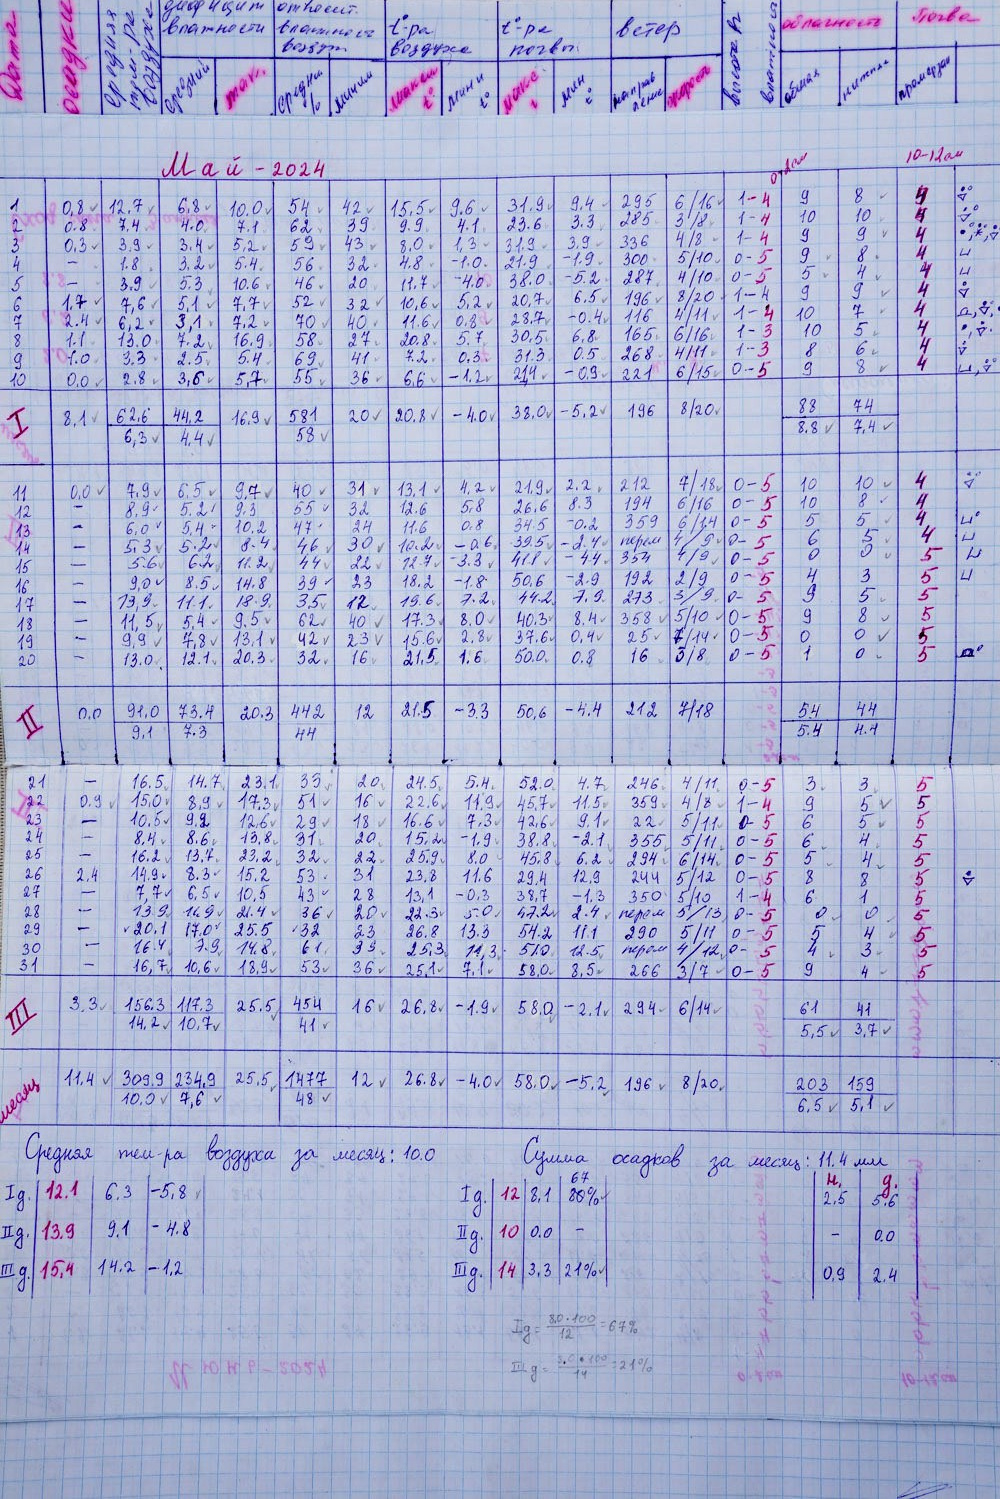 Дата осадки средняя темп-ра воздуха дефицит влажности относит. влажность воздуха t°-ра воздуха t°-ра почвы ветер облачность Почва
средний мак. средня % миним максим t° мин t° макс t мин t° направление скорость общая нижняя промерзан
Май - 2024 0-2см 10-12см
1 0,8 12,7 6,8 10.0 54 42 15,5 9.6 31.9 9,4 295 6/16 1-4 9 8 4
2 0.8 7,4 4.0 7.1 62 39 9.9 4.1 23.6 3.3 285 3/8 1-4 10 10 4
3 0,3 3,9 3.4 5,2 59 43 8,0 1,3 31.9 3,9 336 4/8 1-4 9 9 4
4 - 1.8 3.2 5.4 56 32 4.8 -1.0 21.9 -1.9 300 5/10 0-5 9 8 4
5 - 3.9 5.3 10.6 46 20 11.7 -4.0 38.0 -5.2 287 4/10 0-5 5 4 4
6 1.7 7,6 5,1 7,7 52 32 10,6 5.2 20,7 6.5 196 8/20 1-4 9 9 4
7 2.4 6,2 3,1 7.2 70 40 11.6 0.8 28.7 -0.4 116 4/11 1-4 10 7 4
8 1.1 13.0 7.2 16.9 58 27 20.8 5.7 30.5 6.8 165 6/16 1-3 10 5 4
9 1.0 3.3 2.5 5.4 69 41 7.2 0.3 31.3 0.5 268 4/11 1-3 8 6 4
10 0.0 2.8 3,6 5,7 55 36 6,6 -1.2 21,4 -0,9 221 6/15 0-5 9 8 4
I 8,1 62.6 44.2 16.9 581 20 20.8 -4.0 38,0 -5,2 196 8/20 88 74
6,3 4.4 58 8.8 7,4
11 0,0 7.9 6.5 9,7 40 31 13,1 4.2 21.9 2.2 212 7/18 0-5 10 10 4
12 - 8,9 5.2 9.3 55 32 12.6 5,8 26.6 8.3 194 6/16 0-5 10 8 4
13 - 6,0 5,4 10.2 47 24 11.6 0.8 34.5 -0.2 359 6/14 0-5 5 5 4
14 - 5.3 5.2 8.4 46 30 10.2 -0.6 39.5 -2.4 перем 4/9 0-5 6 5 4
15 - 5.6 6.2 11.2 44 22 12.7 -3.3 41.1 -4.4 354 4/9 0-5 0 0 5
16 - 9,0 8.5 14.8 39 23 18.2 -1.8 50,6 -2.9 192 2/9 0-5 4 3 5
17 - 13,9 11.1 18.9 35 12 19.6 7.2 44.2 7.9 273 3/9 0-5 9 5 5
18 - 11,5 5,4 9.5 62 40 17.3 8,0 40.3 8,4 358 5/10 0-5 9 8 5
19 - 9,9 7,8 13,1 42 23 15.6 2,8 37.6 0,4 25 7/14 0-5 0 0 5
20 - 13.0 12.1 20,3 32 16 21,5 1.6 50.0 0.8 16 3/8 0-5 1 0 5
II 0.0 91.0 73.4 20.3 442 12 21.5 -3.3 50,6 -4.4 212 7/18 54 44
9,1 7.3 44 5.4 4.4
21 - 16.5 14.7 23.1 33 20 24.5 5.4 52.0 4.7 246 4/11 0-5 3 3 5
22 0.9 15.0 8,9 17.3 51 16 22.6 11.9 45.7 11.5 359 4/8 1-4 9 5 5
23 - 10.5 9.2 12.6 29 18 16.6 7.3 42.6 9.1 22 5/11 0-5 6 5 5
24 - 8.4 8.6 13.8 31 20 15,2 -1.9 38.8 -2.1 355 5/11 0-5 6 4 5
25 - 16.2 13,7 23,2 32 22 25.9 8.0 45.8 6.2 294 6/14 0-5 5 4 5
26 2.4 14.9 8.3 15.2 53 31 23,8 11.6 29.4 12,9 244 5/12 0-5 8 8 5
27 - 7,7 6,5 10,5 43 28 13,1 -0.3 38,7 -1,3 350 5/10 1-4 6 1 5
28 - 13.9 14.9 21.4 36 20 22.3 5.0 47.2 2.4 перем 5/13 0-5 0 0 5
29 - 20,1 17,0 25.5 32 23 26.8 13.3 54.2 11.1 290 5/11 0-5 5 4 5
30 - 16.4 7.9 14.8 61 39 25,3 11,3 51.0 12.5 перем 4/12 0-5 4 3 5
31 - 16,7 10,6 18,9 53 36 25,1 7,1 58,0 8,5 266 3/7 0-5 9 4 5
III 3,3 156.3 117.3 25.5 454 16 26,8 -1.9 58.0 -2.1 294 6/14 61 41
14,2 10,7 41 5,5 3,7
месяц 11.4 309.9 234,9 25,5 1477 12 26.8 -4.0 58.0 -5,2 196 8/20 203 159
10.0 7,6 48 6.5 5,1
Средняя тем-ра воздуха за месяц: 10.0 Сумма осадков за месяц: 11.4 мм
67 н. д.
I д. 12.1 6.3 -5,8 I д. 12 8,1 80% 2,5 5.6
II д. 13.9 9.1 -4.8 II д. 10 0.0 - - 0.0
III д. 15,4 14.2 -1,2 III д. 14 3,3 21% 0,9 2.4
I д = 8,0 • 100 / 12 = 67%
III д = 3.0 • 100 / 14 = 21%